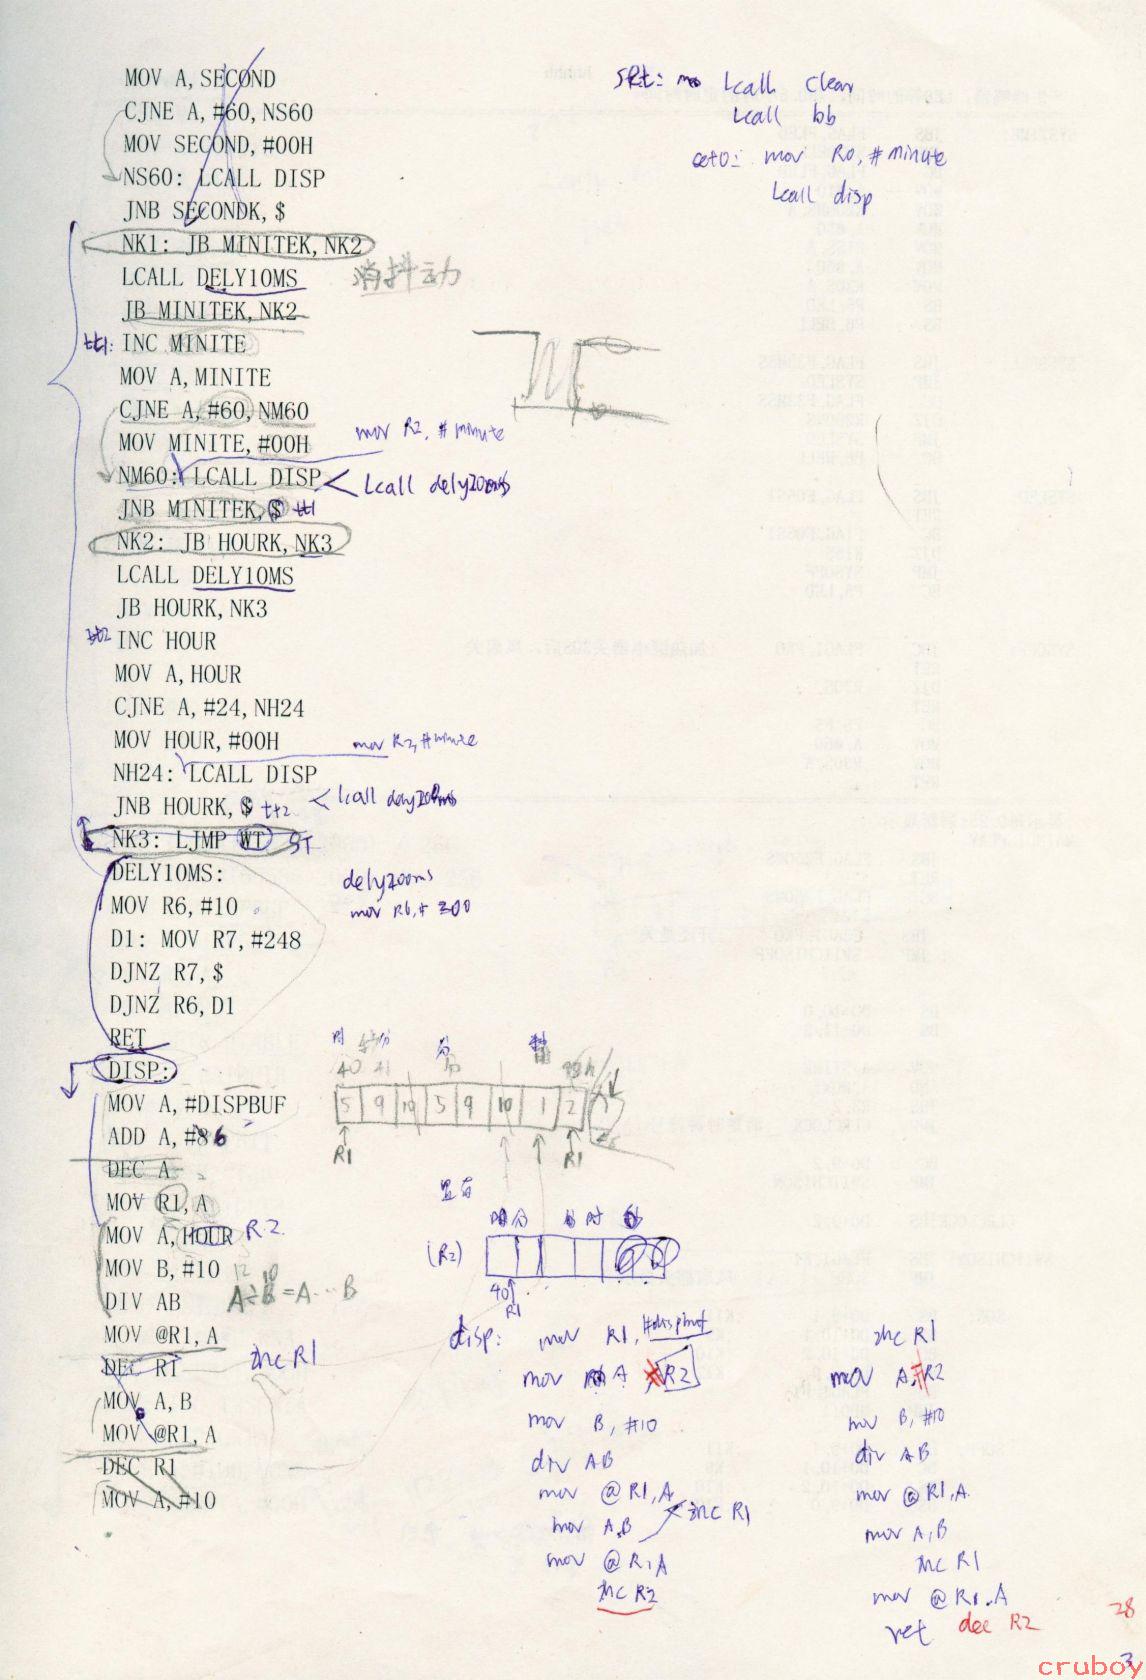 MOV A, SECOND
CJNE A, #60, NS60
MOV SECOND, #00H
NS60: LCALL DISP
JNB SECONDK, $
NK1: JB MINITEK, NK2
LCALL DELY10MS
消抖动
JB MINITEK, NK2
tt1: INC MINITE
MOV A, MINITE
CJNE A, #60, NM60
MOV MINITE, #00H
mov R2, #minute
NM60: LCALL DISP
Lcall dely200ms
JNB MINITEK, $ tt1
NK2: JB HOURK, NK3
LCALL DELY10MS
JB HOURK, NK3
tt2 INC HOUR
MOV A, HOUR
CJNE A, #24, NH24
MOV HOUR, #00H
mov R2, #minute
NH24: LCALL DISP
JNB HOURK, $ tt2
lcall dely200ms
NK3: LJMP WT ST
DELY10MS:
MOV R6, #10
D1: MOV R7, #248
DJNZ R7, $
DJNZ R6, D1
RET
DISP:
MOV A, #DISPBUF
ADD A, #86
DEC A
MOV R1, A
MOV A, HOUR R2
MOV B, #10
DIV AB
MOV @R1, A
DEC R1
inc R1
MOV A, B
MOV @R1, A
DEC R1
MOV A, #10
SRt: Lcall clear
Lcall bb
set0: mov R0, #minute
Lcall disp
dely200ms
mov R6, # 200
时 分
40 41
5 9 10 5 9 10 1 2
R1 R1
12 10
A÷B=A…B
(R2)
40
R1
disp: mov R1, #dispbuf
mov A #R2
mov B, #10
div AB
mov @R1, A
inc R1
mov A,B
mov @R1A
inc R2
inc R1
mov A, #R2
mov B, #10
div AB
mov @R1, A
mov A, B
inc R1
mov @R1, A
ret dec R2
28
3
cruboy